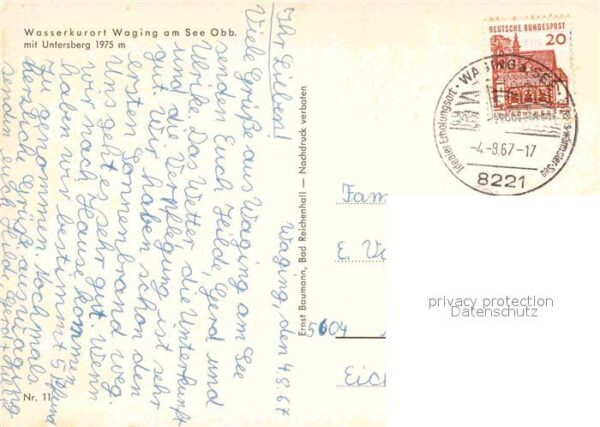 Wasserkurort Waging am See Obb.
mit Untersberg 1975 m
Waging, den 4.8.67
Ihr Lieben!
Viele Grüße aus Waging am See
senden Euch Hilde, Gerd und
Ulike. Das Wetter die Unterkunft
und die Verpflegung ist sehr
gut. Wir haben schon den
ersten Sonnenbrand weg.
Uns geht es sehr gut. Wenn
wir nach Hause kommen
haben wir bestimmt 5 Pfund
zu genommen. Nochmals
herzliche Grüße aus Waging
senden euch Hilde Gerd +
Nr. 11
Ernst Baumann, Bad Reichenhall — Nachdruck verboten
DEUTSCHE BUNDESPOST
20
WAGING A. SEE
Idealer Erholungsort
-4.-8.67-17
8221
Fam
E. V
5604
Eic
privacy protection
Datenschutz